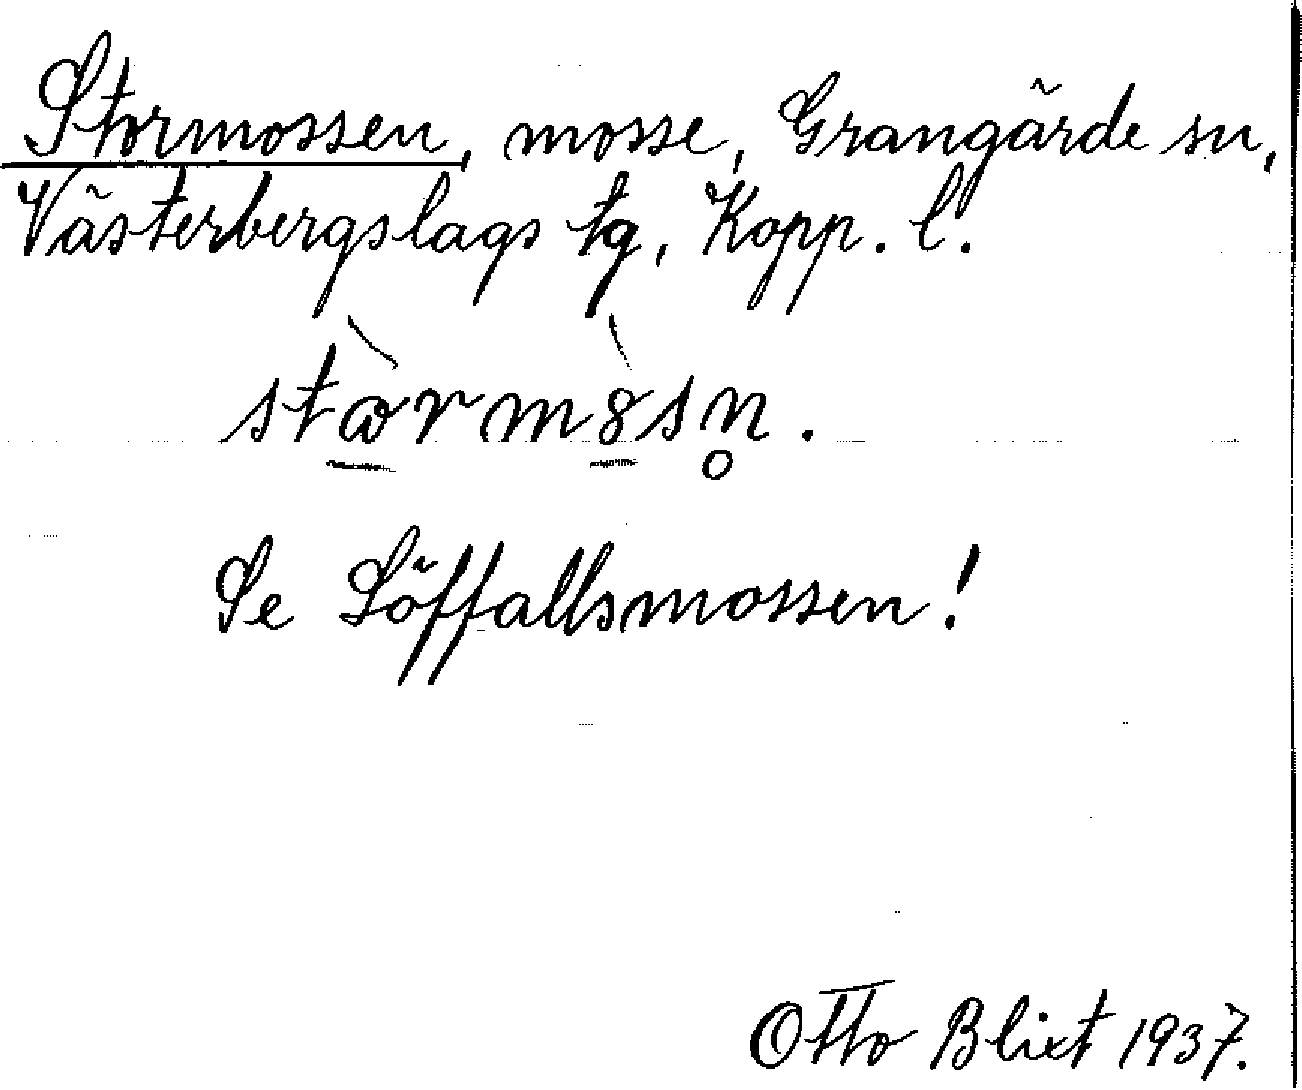 Stormossen, mosse, Grangärde sn,
Västerbergslags tg, Kopp. l.
stꞷ̠̀rm8̠̀sn̥.
Se Söffallsmossen!
Otto Blixt 1937.